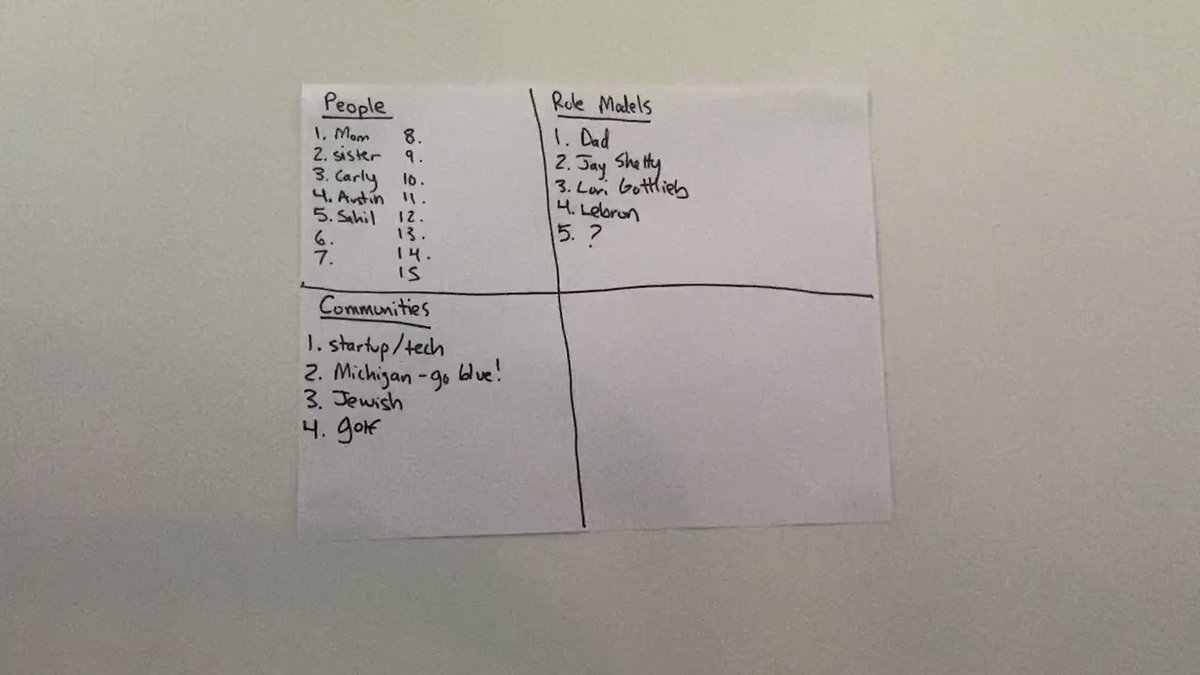 People
1. Mom 8.
2. sister 9.
3. Carly 10.
4. Austin 11.
5. Sahil 12.
6. 13.
7. 14.
15
Role Models
1. Dad
2. Jay Shetty
3. Lori Gottlieb
4. Lebron
5. ?
Communities
1. startup/tech
2. Michigan - go blue!
3. Jewish
4. golf